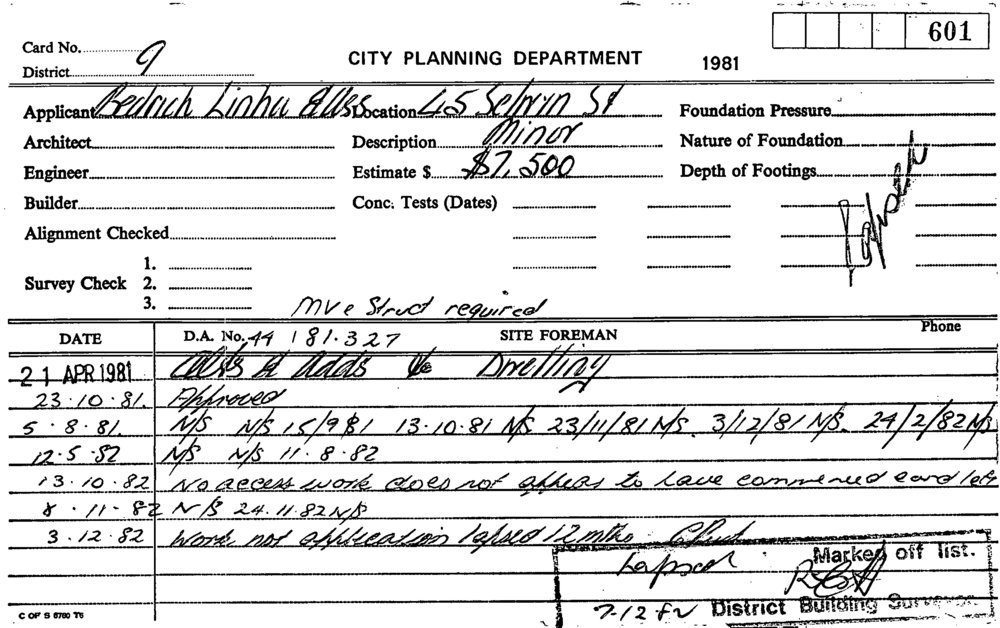 601
Card No. 9
CITY PLANNING DEPARTMENT 1981
District
Applicant Bedrich Linha Location 45 Selwyn St Foundation Pressure
Architect Description Minor Nature of Foundation
Engineer Estimate $ $7,500 Depth of Footings
Lapsed
Builder Conc. Tests (Dates)
Alignment Checked
1.
Survey Check 2.
3.
Struct required
DATE D.A. No. 44 181.327 SITE FOREMAN Phone
21 APR 1981 Alts & Adds to Dwelling
23.10.81. Approved
5.8.81. N/S N/S 15/9/81 13.10.81 N/S 23/11/81 N/S. 3/12/81 N/S. 24/2/82 N/S
12.5.82 N/S N/S 11.8.82
13.10.82 No access work does not appear to have commenced card left
8.11.82 N/S 24.11.82 N/S
3.12.82 Work not application lapsed 12 mths
Marked off list.
Lapsed
7-12-82 District Building Surveyor
C OF S 6760 T6